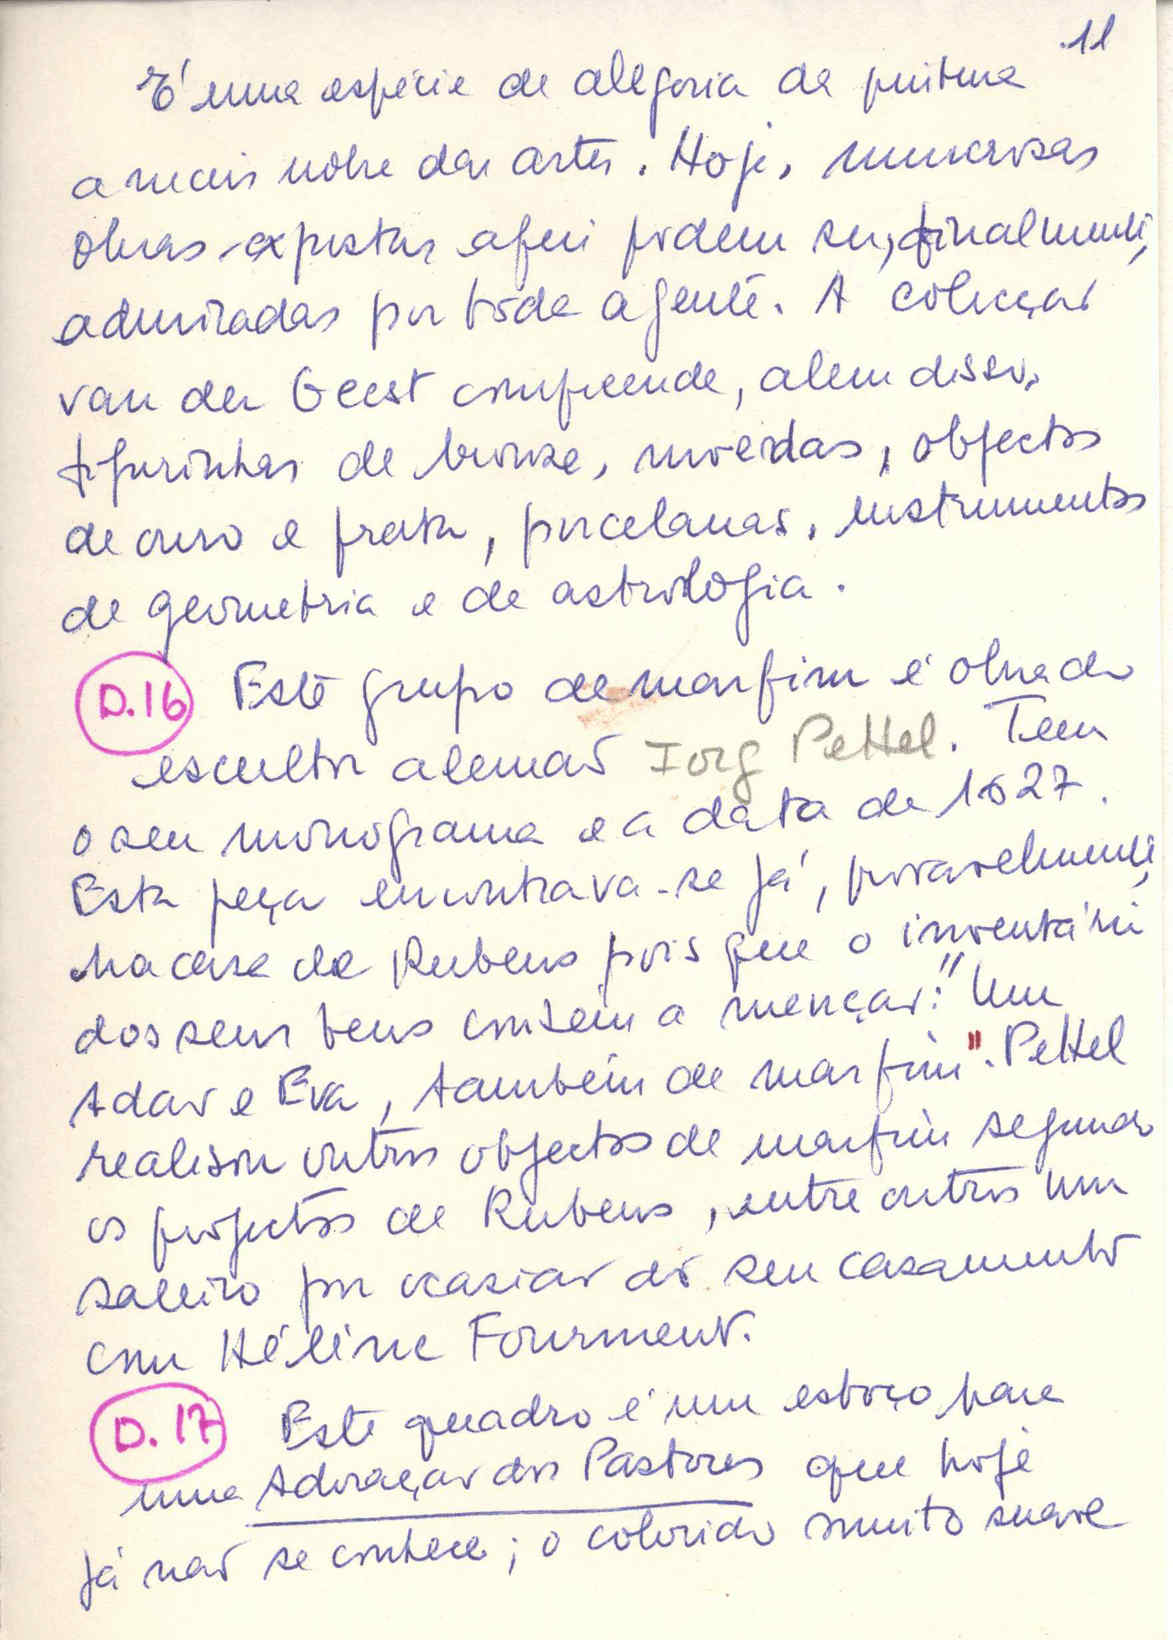 11
É uma espécie de alegoria da pintura
a mais nobre das artes. Hoje, numerosas
obras expostas aqui podem ser, finalmente,
admiradas por toda a gente. A colecção
van der Geest compreende, alem disso,
figurinhas de bronze, moedas, objectos
de ouro e prata, porcelanas, instrumentos
de geometria e de astrologia.
D.16 Este grupo de marfim é obra do
escultor alemão Iorg Pettel. Tem
o seu monograma e a data de 1627.
Esta peça encontrava-se já, provavelmente,
na casa de Rubens pois que o inventário
dos seus bens contém a menção: "Um
Adão e Eva, também de marfim". Pettel
realisou outros objectos de marfim segundo
os projectos de Rubens, entre outros um
saleiro por ocasião do seu casamento
com Hélène Fourment.
D.17 Este quadro é um esboço para
uma Adoração dos Pastores que hoje
já não se conhece; o colorido muito suave